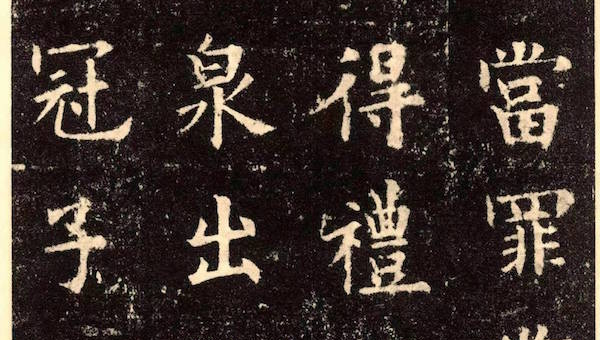 當罪
得禮
泉出
冠子